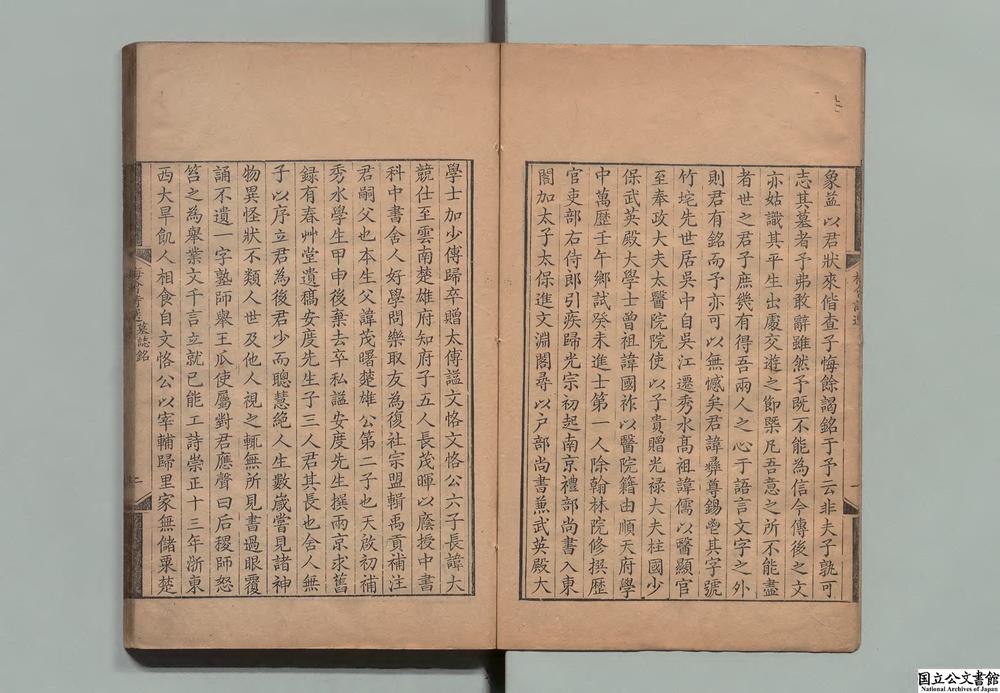 象益以君狀來偕查子悔餘謁銘于予云非夫子孰可
志其墓者予弗敢辭雖然予既不能為信今傳後之文
亦姑識其平生出處交遊之節槩凡吾意之所不能盡
者世之君子庶幾有得吾兩人之心于語言文字之外
則君有銘而予亦可以無憾矣君諱彝尊錫鬯其字號
竹垞先世居吳中自吳江遷秀水高祖諱儒以醫顯官
至奉政大夫太醫院院使以子貴贈光禄大夫柱國少
保武英殿大學士曾祖諱國祚以醫院籍由順天府學
中萬歷壬午鄉試癸未進士第一人除翰林院修撰歷
官吏部右侍郎引疾歸光宗初起南京禮部尚書入東
閣加太子太保進文淵閣尋以户部尚書兼武英殿大
學士加少傅歸卒贈太傅謚文恪文恪公六子長諱大
競仕至雲南楚雄府知府子五人長茂暉以廕授中書
科中書舍人好學問樂取友為復社宗盟輯禹貢補注
君嗣父也本生父諱茂曙楚雄公第二子也天啟初補
秀水學生甲申後棄去卒私謚安度先生撰兩京求舊
録有春艸堂遺稿安度先生子三人君其長也舍人無
子以序立君為後君少而聰慧絶人生數歲嘗見諸神
物異怪狀不類人世及他人視之輒無所見書過眼覆
誦不遺一字塾師舉王瓜使屬對君應聲曰后稷師怒
笞之為舉業文千言立就已能工詩崇正十三年浙東
西大旱飢人相食自文恪公以宰輔歸里家無儲粟楚
墓誌銘
国立公文書館
National Archives of Japan